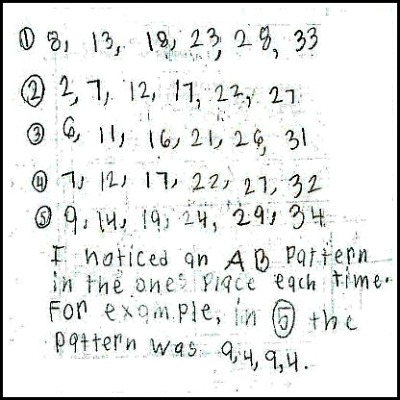 ① 8, 13, 18, 23, 28, 33
② 2, 7, 12, 17, 22, 27
③ 6, 11, 16, 21, 26, 31
④ 7, 12, 17, 22, 27, 32
⑤ 9, 14, 19, 24, 29, 34
I noticed an AB Pattern
in the ones place each time.
For example, in ⑤ the
pattern was 9,4,9,4.